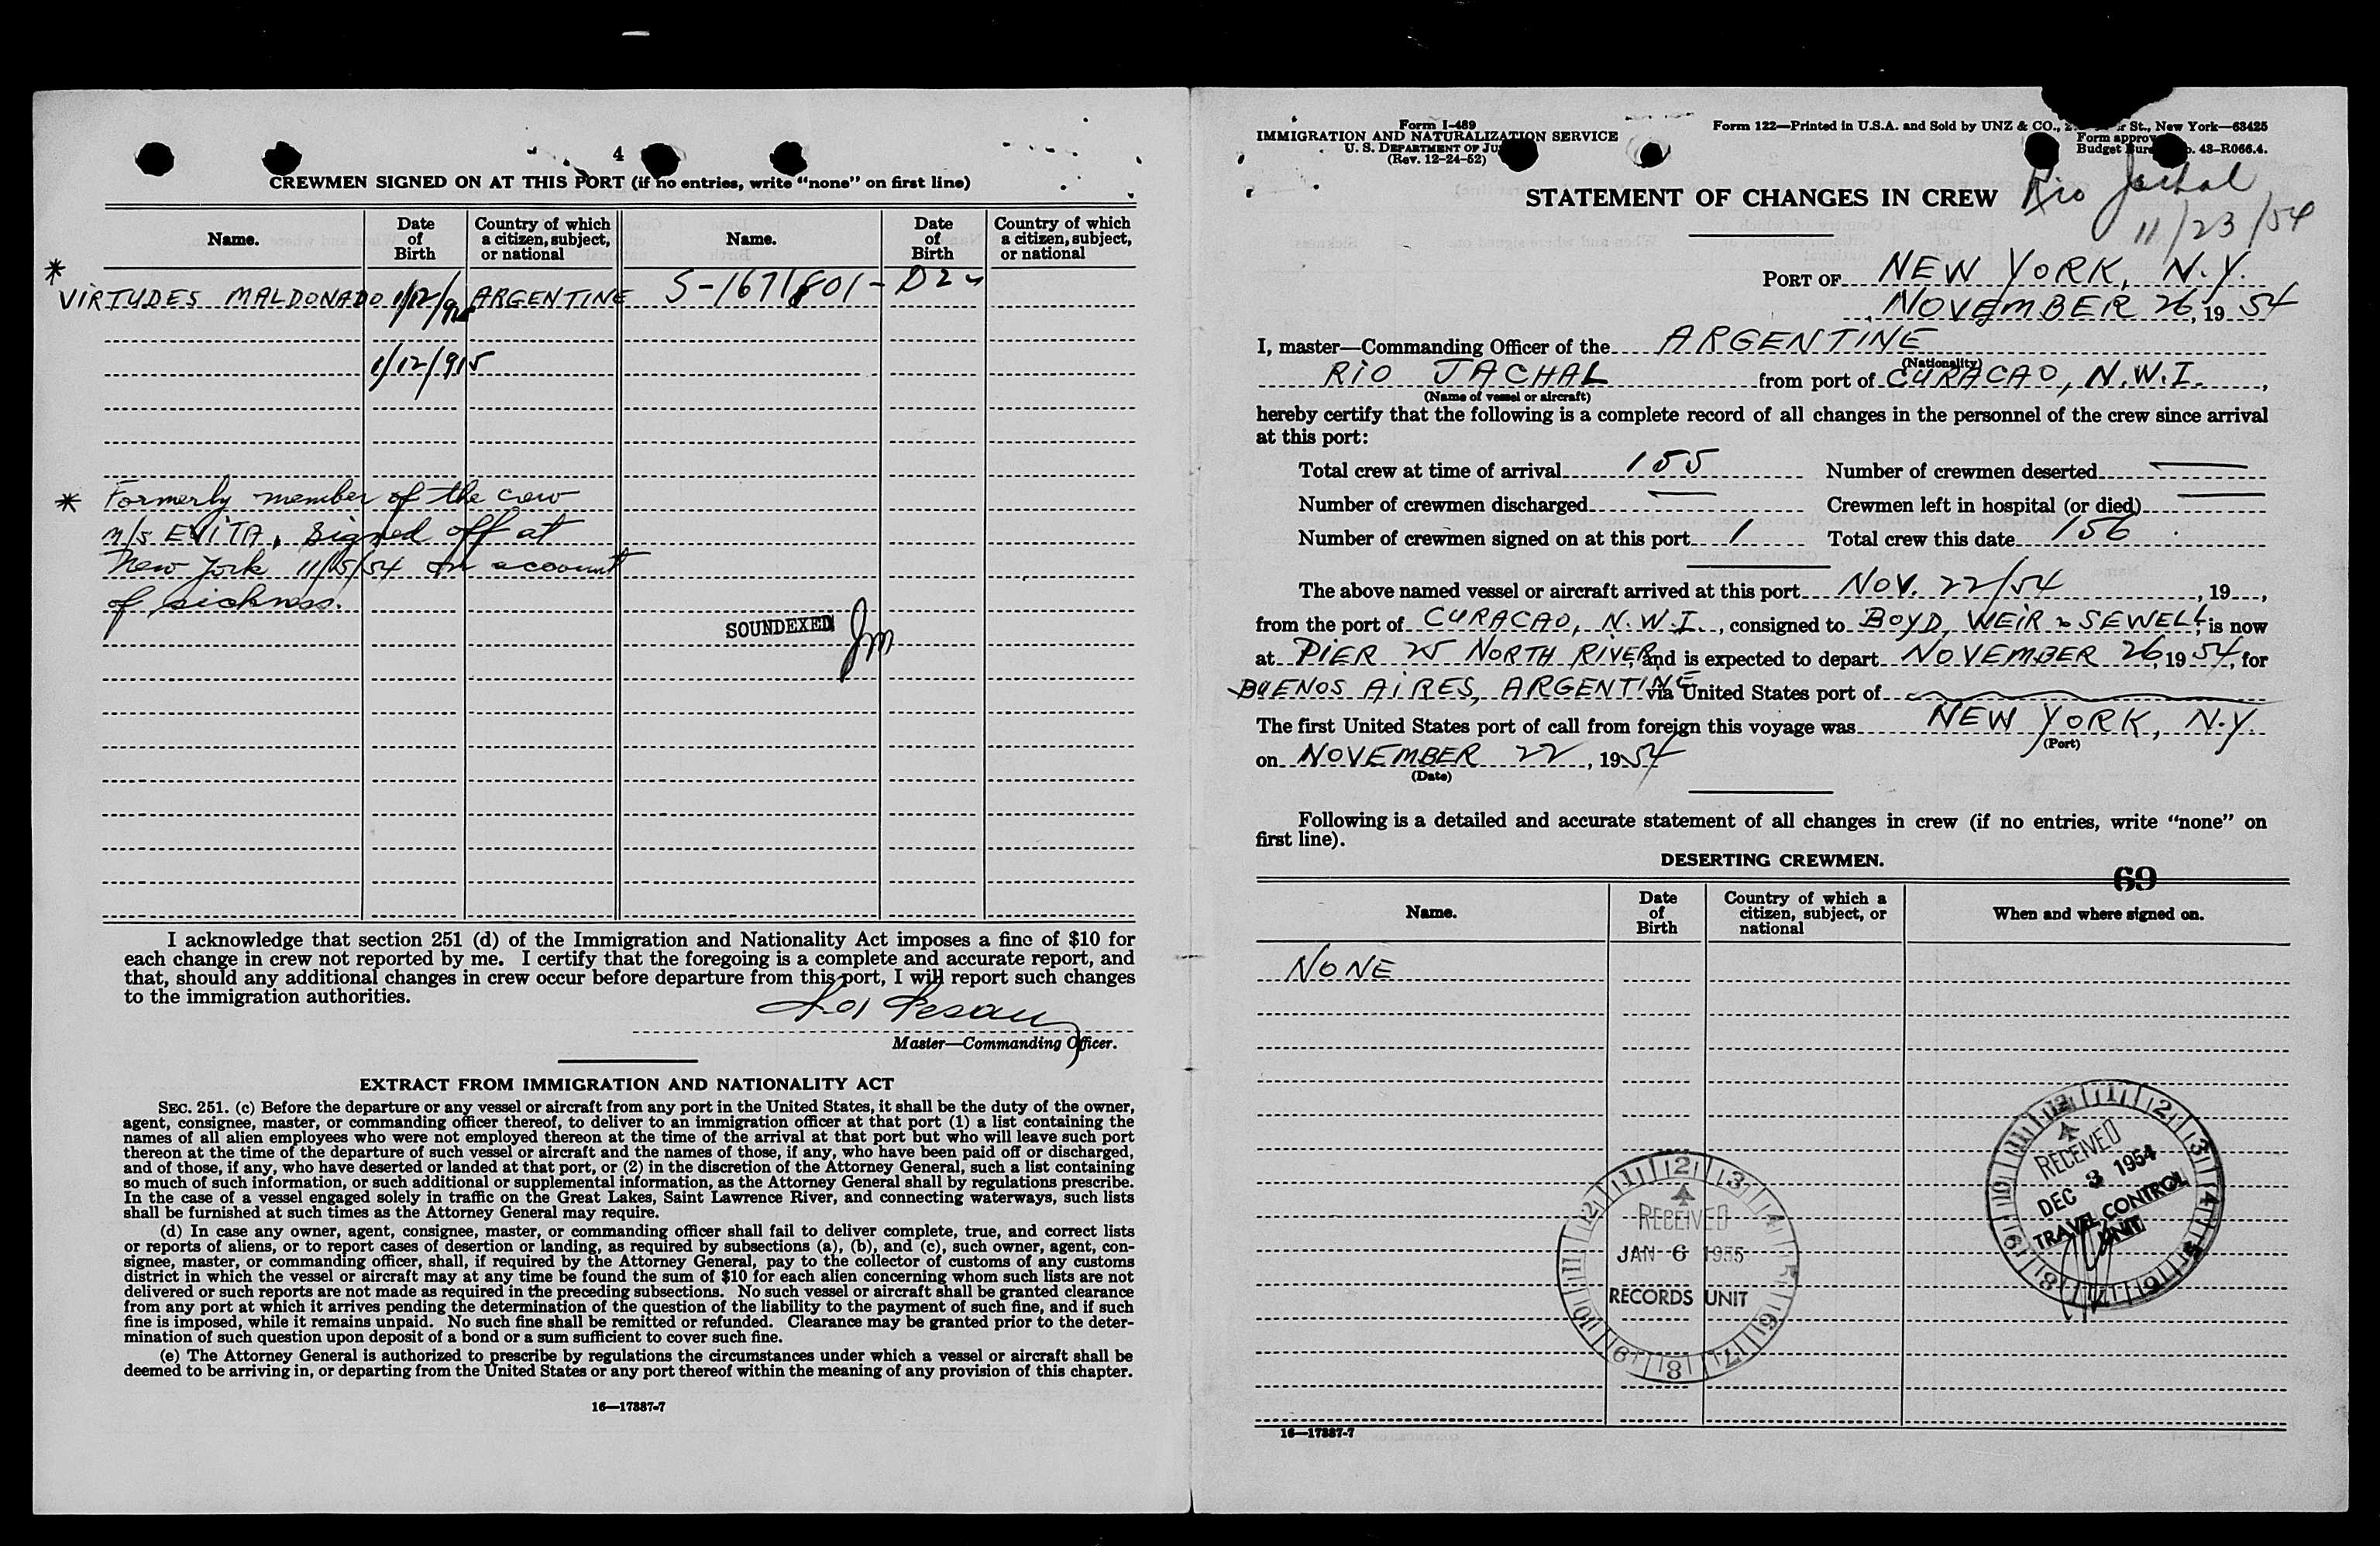 4
CREWMEN SIGNED ON AT THIS PORT (if no entries, write “none” on first line)
Name.
Date of Birth
Country of which a citizen, subject, or national
Name.
Date of Birth
Country of which a citizen, subject, or national
*
VIRTUDES MALDONADO 1/12/915 ARGENTINE S-1671801-
1/12/915
* Formerly member of the crew
m/s EVITA, signed off at
New York 11/15/54 on account
of sickness.
SOUNDEXED
I acknowledge that section 251 (d) of the Immigration and Nationality Act imposes a fine of $10 for
each change in crew not reported by me. I certify that the foregoing is a complete and accurate report, and
that, should any additional changes in crew occur before departure from this port, I will report such changes
to the immigration authorities.
Master—Commanding Officer.
EXTRACT FROM IMMIGRATION AND NATIONALITY ACT
SEC. 251. (c) Before the departure or any vessel or aircraft from any port in the United States, it shall be the duty of the owner,
agent, consignee, master, or commanding officer thereof, to deliver to an immigration officer at that port (1) a list containing the
names of all alien employees who were not employed thereon at the time of the arrival at that port but who will leave such port
thereon at the time of the departure of such vessel or aircraft and the names of those, if any, who have been paid off or discharged,
and of those, if any, who have deserted or landed at that port, or (2) in the discretion of the Attorney General, such a list containing
so much of such information, or such additional or supplemental information, as the Attorney General shall by regulations prescribe.
In the case of a vessel engaged solely in traffic on the Great Lakes, Saint Lawrence River, and connecting waterways, such lists
shall be furnished at such times as the Attorney General may require.
(d) In case any owner, agent, consignee, master, or commanding officer shall fail to deliver complete, true, and correct lists
or reports of aliens, or to report cases of desertion or landing, as required by subsections (a), (b), and (c), such owner, agent, con-
signee, master, or commanding officer, shall, if required by the Attorney General, pay to the collector of customs of any customs
district in which the vessel or aircraft may at any time be found the sum of $10 for each alien concerning whom such lists are not
delivered or such reports are not made as required in the preceding subsections. No such vessel or aircraft shall be granted clearance
from any port at which it arrives pending the determination of the question of the liability to the payment of such fine, and if such
fine is imposed, while it remains unpaid. No such fine shall be remitted or refunded. Clearance may be granted prior to the deter-
mination of such question upon deposit of a bond or a sum sufficient to cover such fine.
(e) The Attorney General is authorized to prescribe by regulations the circumstances under which a vessel or aircraft shall be
deemed to be arriving in, or departing from the United States or any port thereof within the meaning of any provision of this chapter.
16—17887-7
Form I-489
IMMIGRATION AND NATURALIZATION SERVICE
U. S. DEPARTMENT OF JU
(Rev. 12-24-52)
Form 122—Printed in U.S.A. and Sold by UNZ & CO., St., New York—63425
Form approv
Budget Bur o. 43-R066.4.
STATEMENT OF CHANGES IN CREW
Rio Jachal
11/23/54
PORT OF NEW YORK, N.Y.
NOVEMBER 26, 1954
I, master—Commanding Officer of the ARGENTINE
(Nationality)
RIO JACHAL from port of CURACAO, N.W.I.,
(Name of vessel or aircraft)
hereby certify that the following is a complete record of all changes in the personnel of the crew since arrival
at this port:
Total crew at time of arrival 155 Number of crewmen deserted —
Number of crewmen discharged — Crewmen left in hospital (or died) —
Number of crewmen signed on at this port 1 Total crew this date 156
The above named vessel or aircraft arrived at this port NOV. 22/54, 19 ,
from the port of CURACAO, N.W.I., consigned to BOYD, WEIR & SEWELL, is now
at PIER 25 NORTH RIVER and is expected to depart NOVEMBER 26, 1954, for
BUENOS AIRES, ARGENTINE via United States port of
The first United States port of call from foreign this voyage was NEW YORK, N.Y.
(Port)
on NOVEMBER 22, 1954
(Date)
Following is a detailed and accurate statement of all changes in crew (if no entries, write “none” on
first line).
DESERTING CREWMEN.
69
Name.
Date of Birth
Country of which a citizen, subject, or national
When and where signed on.
NONE
RECEIVED
DEC 3 1954
TRAVEL CONTROL
UNIT
RECEIVED
JAN 6 1955
RECORDS UNIT
16—17887-7